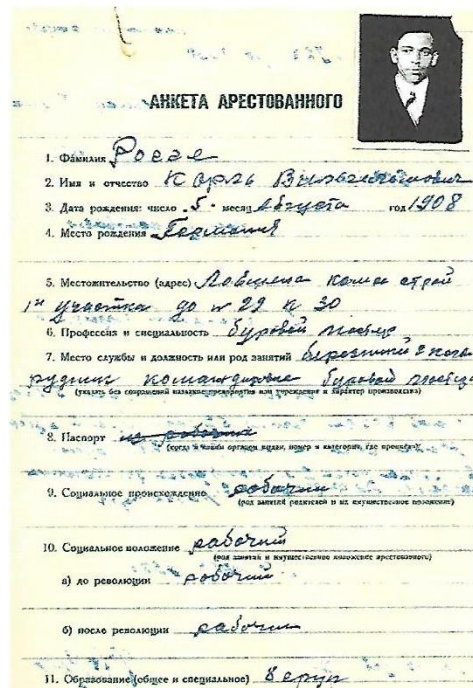 АНКЕТА АРЕСТОВАННОГО
1. Фамилия Росее
2. Имя и отчество Карль Вильгельмович
3. Дата рождения: число 5 месяц Августа год 1908
4. Место рождения Германия
5. Местожительство (адрес)
1й участка до № 29 к 30
6. Профессия и специальность буровой мастер
7. Место службы и должность или род занятий
рудник командировке буровой мастер
(указать без сокращений название предприятия или учреждения и характер производства)
8. Паспорт
(когда и каким органом выдан, номер и категория, где прописан)
9. Социальное происхождение рабочий
(род занятий родителей и их имущественное положение)
10. Социальное положение рабочий
(род занятий и имущественное положение арестованного)
а) до революции рабочий
б) после революции рабочий
11. Образование (общее и специальное) 8 групп